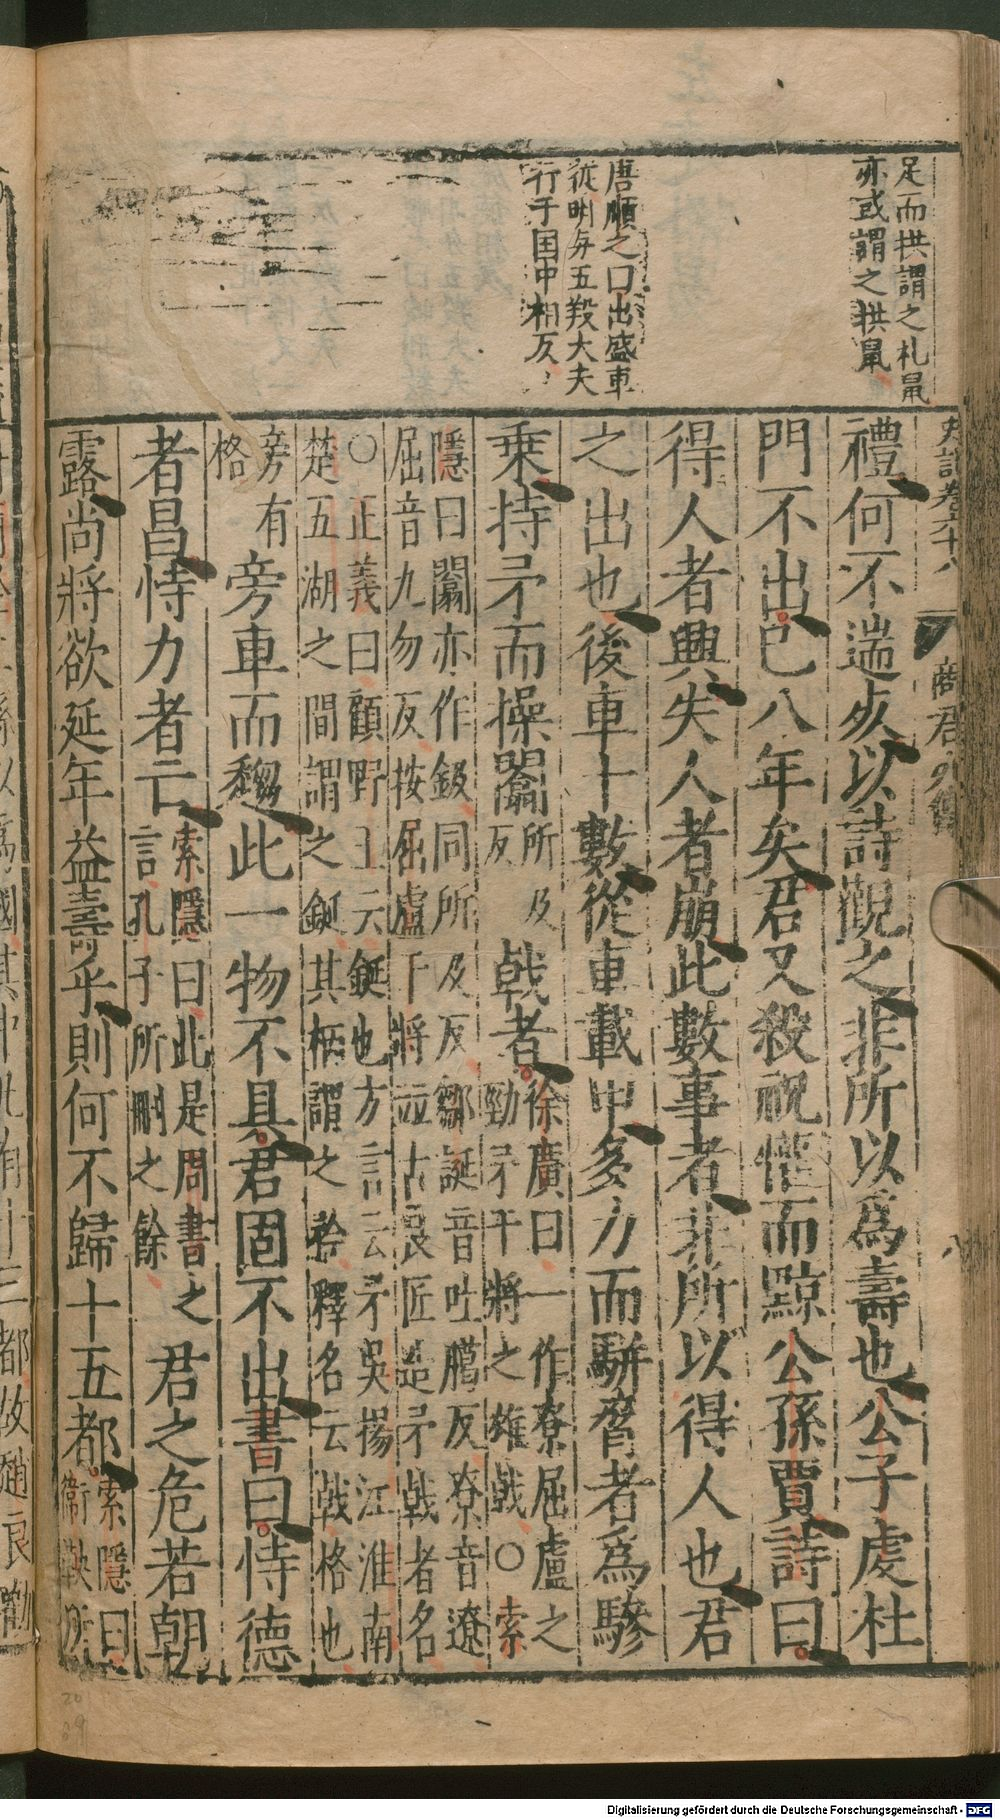 足而拱謂之礼鼠
亦或謂之拱鼠
唐順之口出盛車
從則与五羖大夫
行于国中相反
史記卷六十八
商君列傳
八
禮何不遄死以詩觀之非所以爲壽也公子虔杜
門不出已八年矣君又殺祝懽而黥公孫賈詩曰
得人者興失人者崩此數事者非所以得人也君
之出也後車十數從車載甲多力而駢脅者爲驂
乗持矛而操闟所及
反戟者徐廣曰一作寮屈盧之
勁矛干將之雄戟○索
隱曰闟亦作鈒同所及反鄒誕音吐臈反寮音遼
屈音九勿反按屈盧干將竝古良匠造矛戟者名
○正義曰顧野王云鋋也方言云矛吳揚江淮南
楚五湖之間謂之鋋其柄謂之矜釋名云戟格也
旁有
格旁車而趨此一物不具君固不出書曰恃德
者昌恃力者亡索隱曰此是周書之
言孔子所刪之餘君之危若朝
露尚將欲延年益壽乎則何不歸十五都索隱曰
衞鞅所
Digitalisierung gefördert durch die Deutsche Forschungsgemeinschaft - DFG